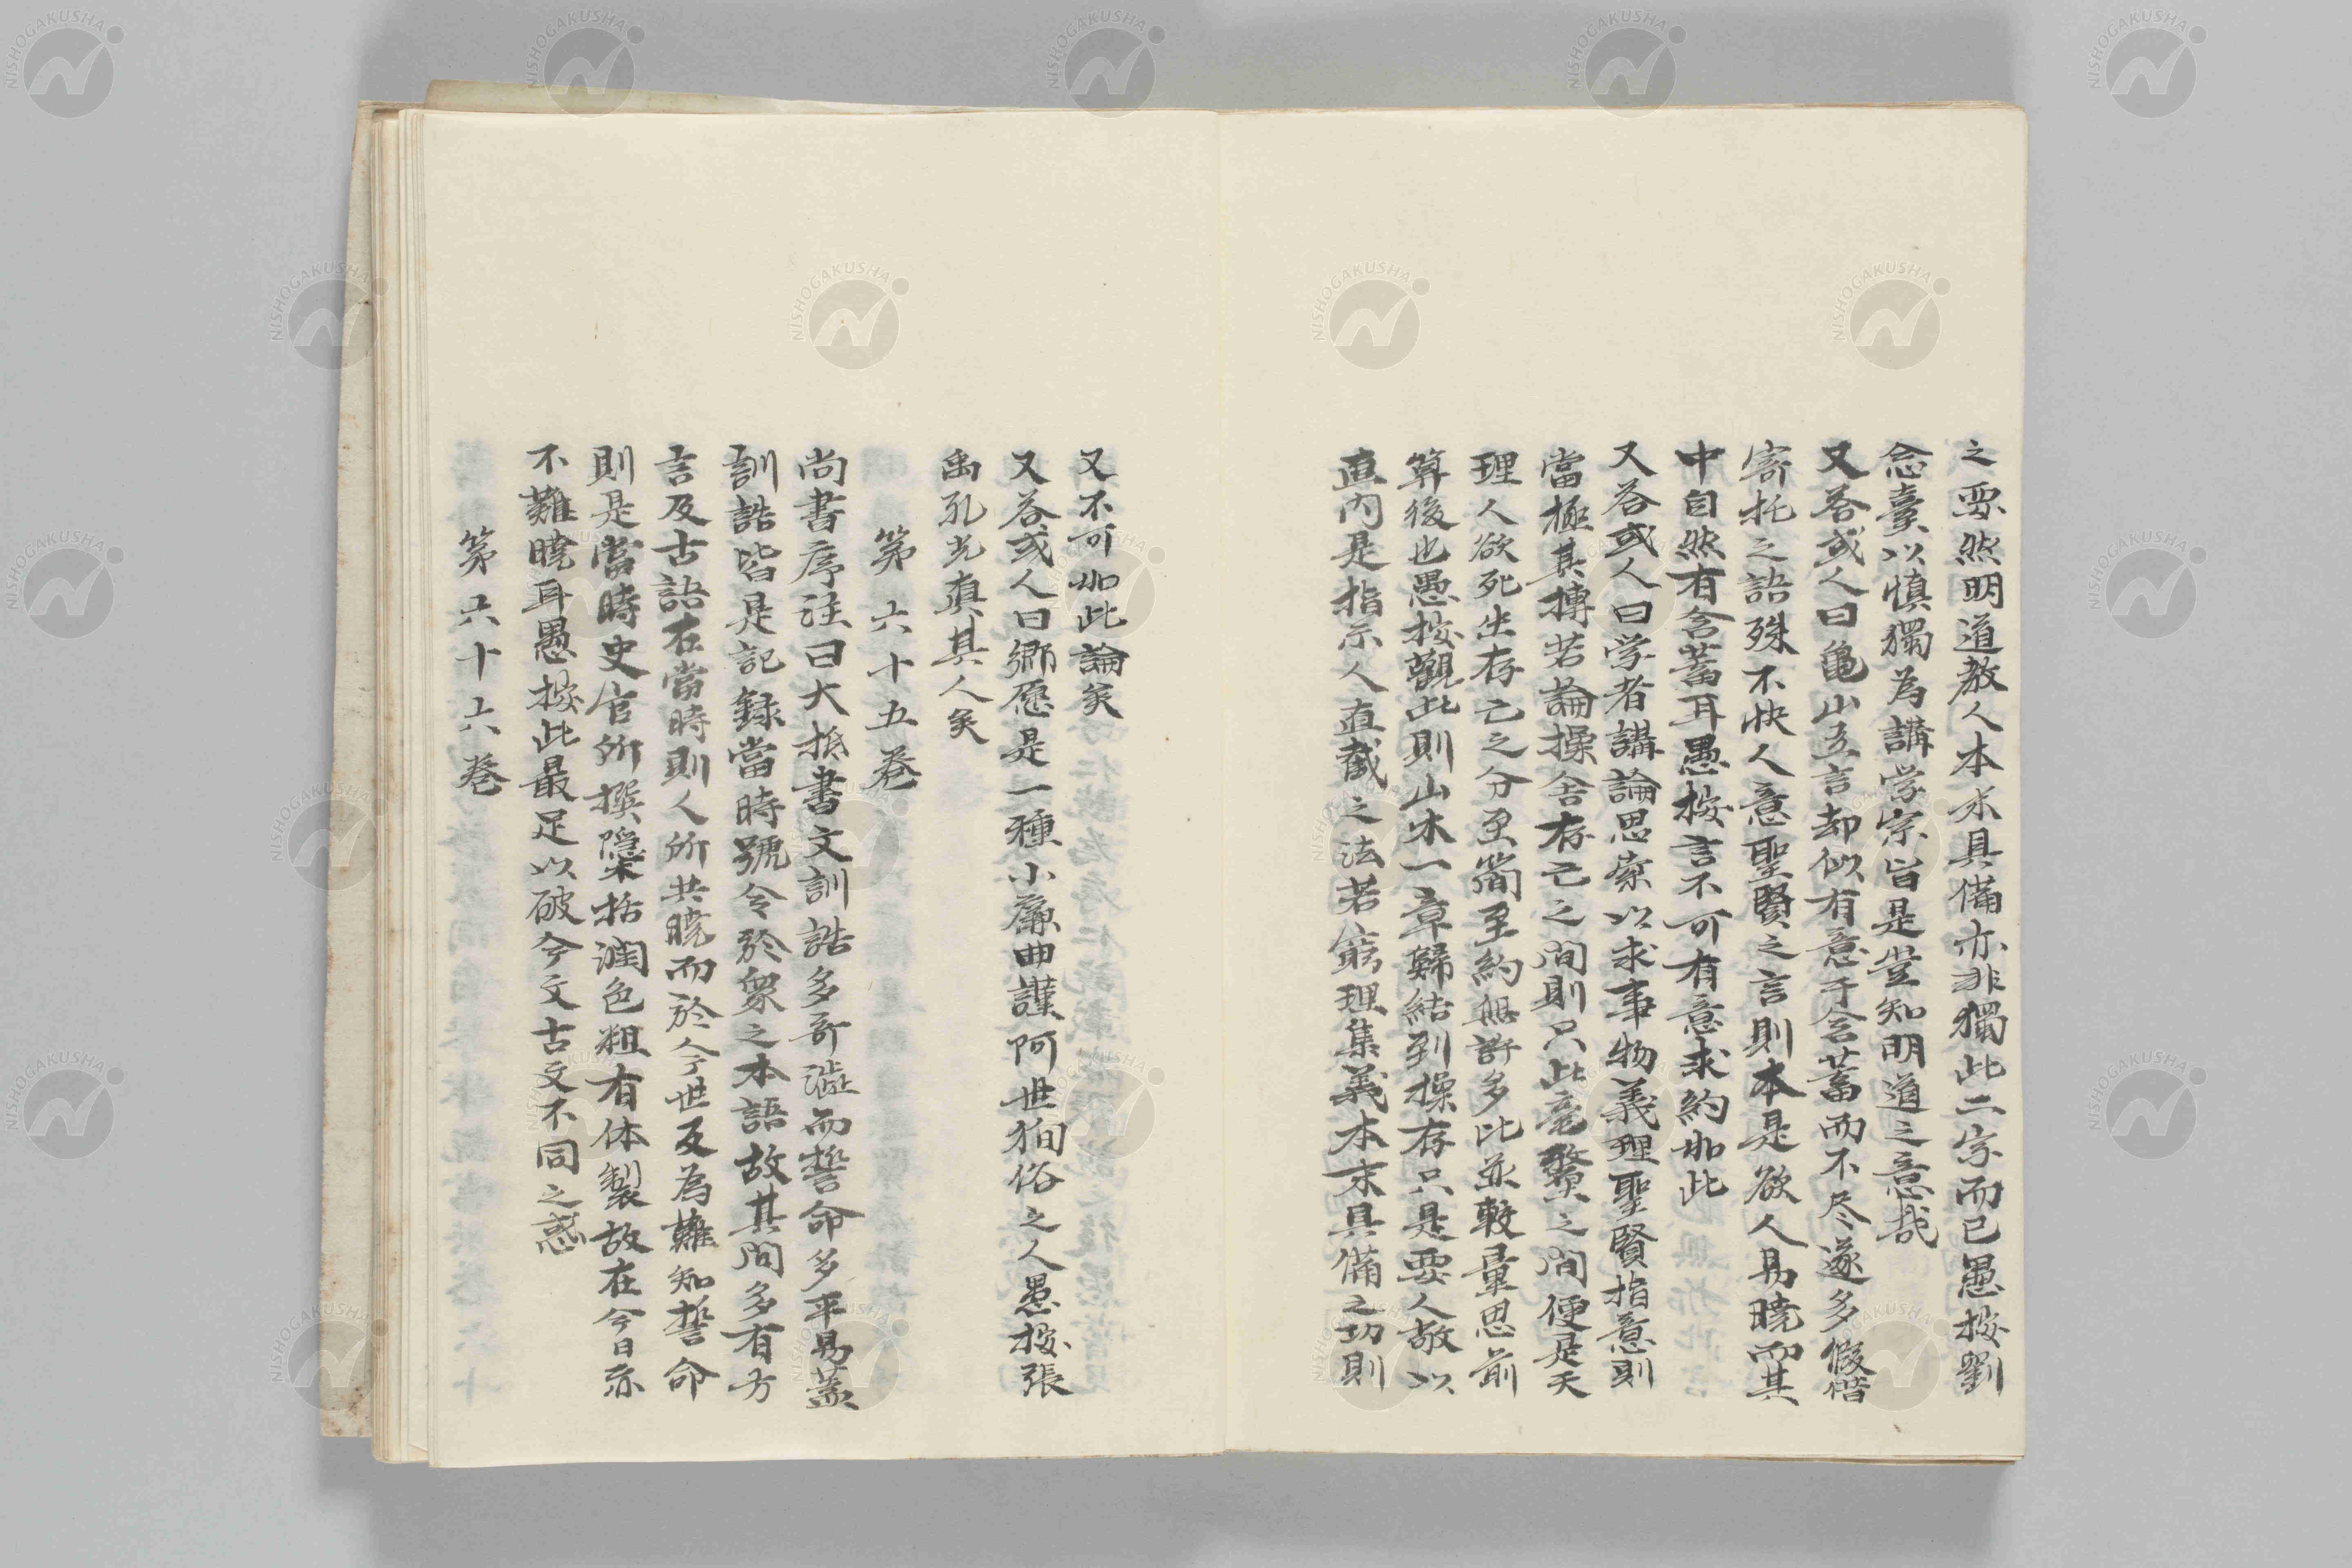 之要然明道教人本末具備亦非獨此二宗而已愚按劉
念臺以慎獨為講学宗旨是豈知明道之意哉
又答或人曰龜山立言却似有意于含蓄而不尽遂多假借
寄托之語殊不快人意聖賢之言則本是欲人易曉而其
中自然有含蓄耳愚按言不可有意求約如此
又答或人曰学者講論思索以求事物義理聖賢指意則
當極其博若論操舍存亡之間則只此毫釐之間便是天
理人欲死生存亡之分至簡至約無許多比並較量思前
算後也愚按觀此則山木一章歸結到操存只是要人敬以
直內是指示人直截之法若窮理集義本末具備之功則
又不可如此論矣
又答或人曰鄉愿是一種小廉曲謹阿世徇俗之人愚按張
禹孔光真其人矣
第六十五卷
尚書序注曰大抵書文訓誥多奇澁而誓命多平易蓋
訓誥皆是記録當時號令於衆之本語故其間多有方
言及古語在當時則人所共曉而於今世反為難知誓命
則是當時史官所撰隱栝潤色粗有体製故在今日亦
不難曉耳愚按此最足以破今文古文不同之惑
第六十六卷
NISHOGAKUSHA